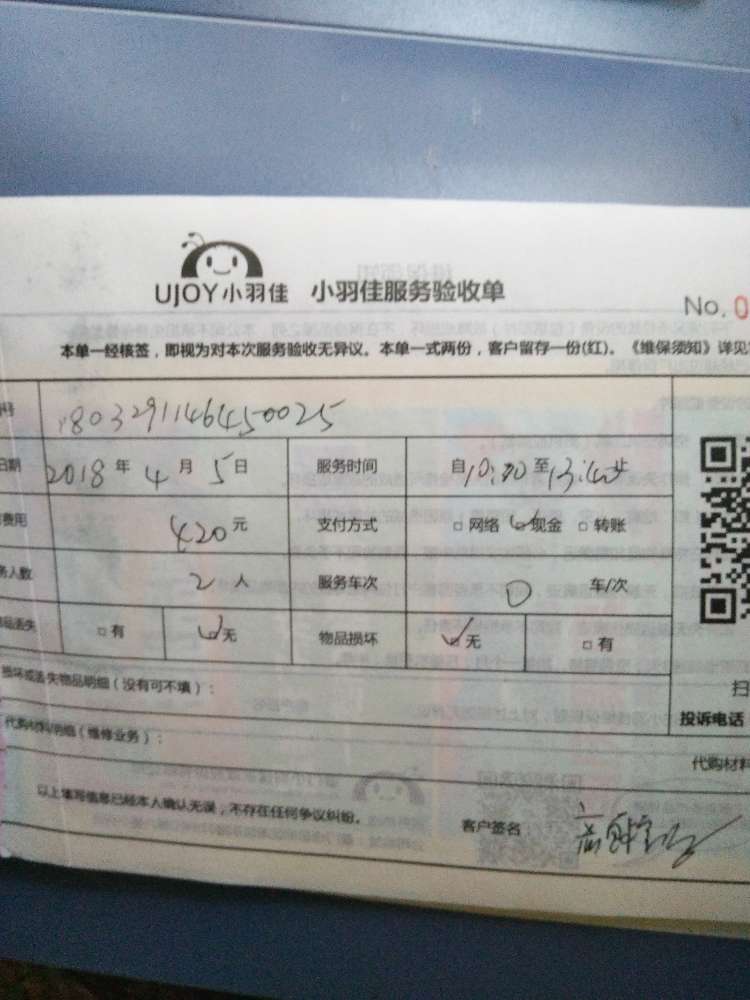 UJOY小羽佳 小羽佳服务验收单
No. 0
本单一经核签，即视为对本次服务验收无异议。本单一式两份，客户留存一份(红)。《维保须知》详见
号 1803291146450025
日期 2018年4月5日 服务时间 自10:20至13:40止
费用 420元 支付方式 □网络 ☑现金 □转账
务人数 2人 服务车次 0 车/次
品丢失 □有 ☑无 物品损坏 ☑无 □有
损坏或丢失物品明细（没有可不填）：
扫
投诉电话
代购材料明细（维修业务）：
代购材料
以上填写信息已经本人确认无误，不存在任何争议纠纷。
客户签名：